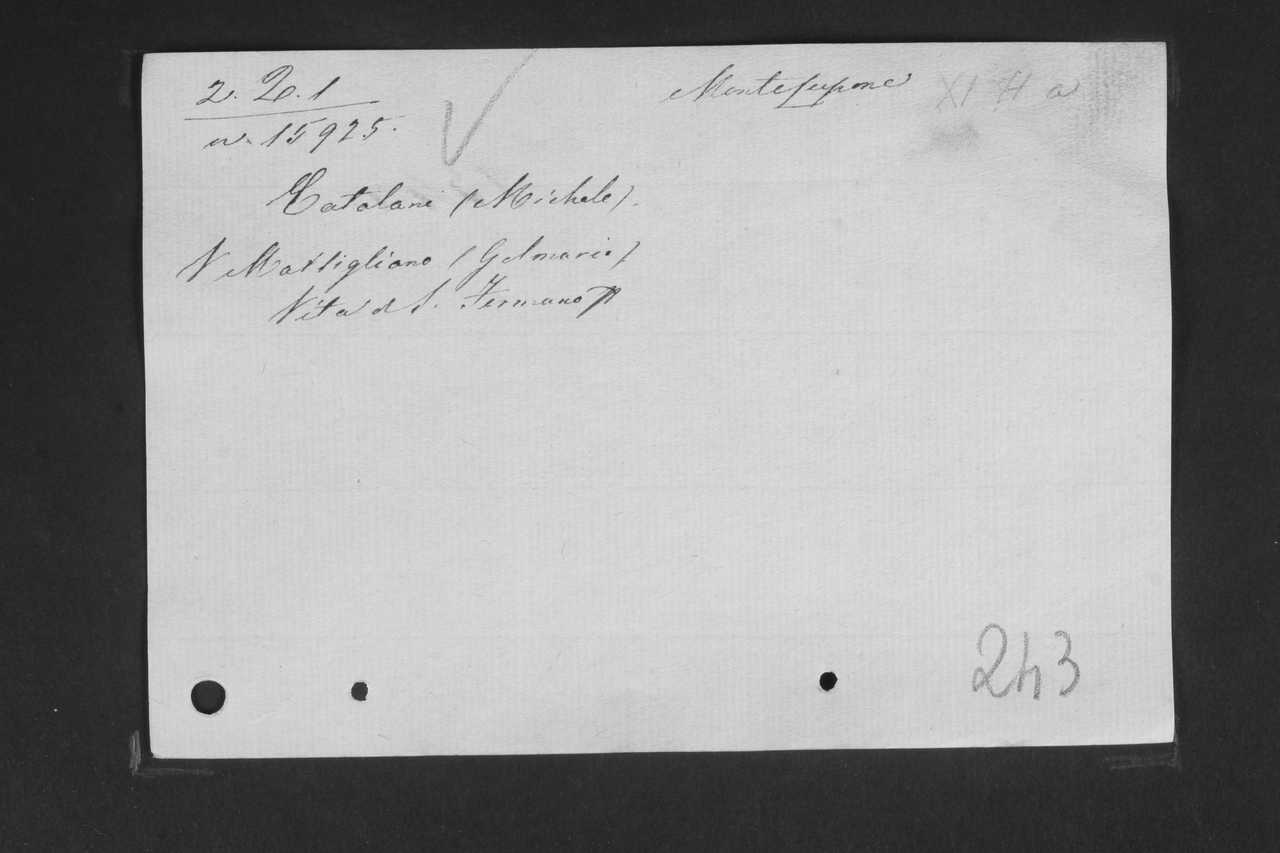 2. D. 1
n. 15925.
Montelupone
XI H a
Catalani (Michele).
V Marsigliano (Gelmario)
Vita di S. Firmano
243